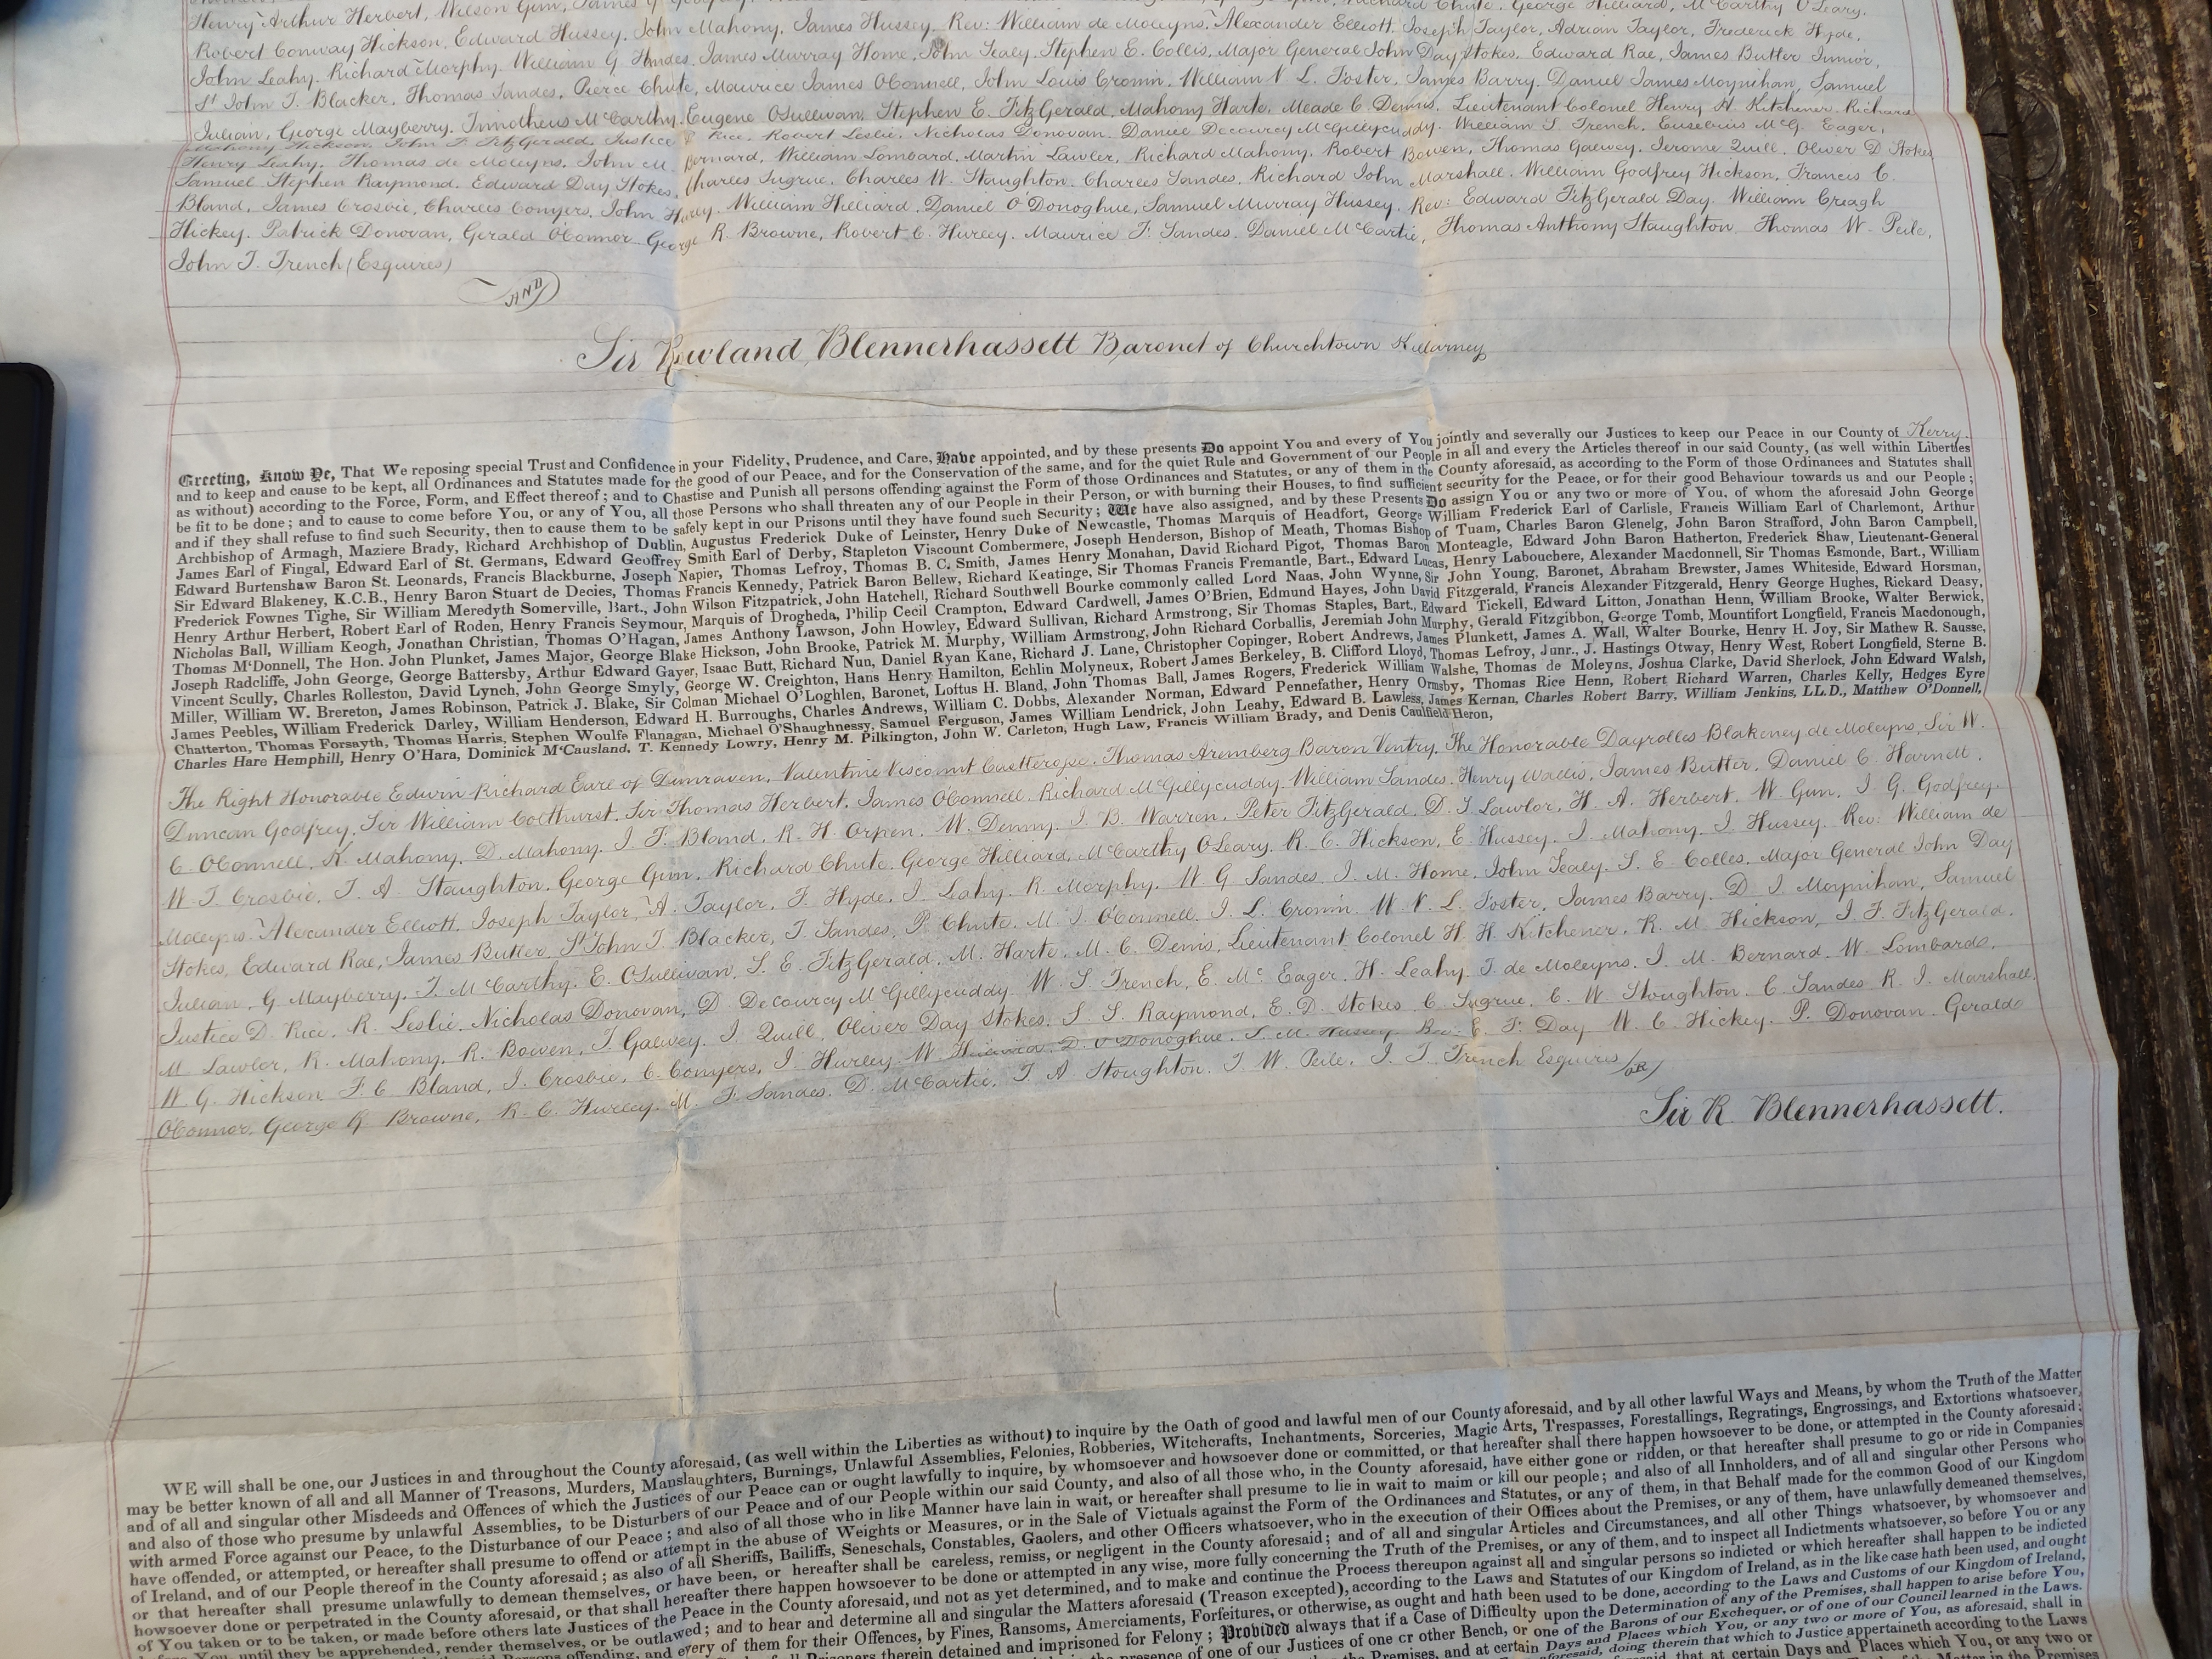 Henry Arthur Herbert, Wilson Gun, James G Godfrey, Richard Chute, George Hilliard, McCarthy O'Leary,
Robert Conway Hickson, Edward Hussey, John Mahony, James Hussey, Rev: William de Moleyns, Alexander Elliott, Joseph Taylor, Adrian Taylor, Frederick Hyde,
John Leahy, Richard Morphy, William G Sandes, James Murray Home, John Sealy, Stephen E. Collis, Major General John Day Stokes, Edward Rae, James Butler Junior,
St John T. Blacker, Thomas Sandes, Pierce Chute, Maurice James O'Connell, John Louis Cronin, William V. L. Foster, James Barry, Daniel James Moynihan, Samuel
Julian, George Mayberry, Timotheus McCarthy, Eugene O'Sullivan, Stephen E. FitzGerald, Mahony Harte, Meade C. Dennis, Lieutenant Colonel Henry H. Kitchener, Richard
Mahony Hickson, John F. FitzGerald, Justice D. Rice, Robert Leslie, Nicholas Donovan, Daniel Decourcy McGillycuddy, William S. Trench, Eusebius McG. Eager,
Henry Leahy, Thomas de Moleyns, John M. Bernard, William Lombard, Martin Lawlor, Richard Mahony, Robert Bowen, Thomas Galwey, Jerome Quill, Oliver D Stokes
Samuel Stephen Raymond, Edward Day Stokes, Charles Sugrue, Charles W. Staughton, Charles Sandes, Richard John Marshall, William Godfrey Hickson, Francis C.
Bland, James Crosbie, Charles Conyers, John Hurly, William Hilliard, Daniel O'Donoghue, Samuel Murray Hussey, Rev: Edward FitzGerald Day, William Creagh
Hickey, Patrick Donovan, Gerald O'Connor, George R. Browne, Robert C. Hurley, Maurice F. Sandes, Daniel McCartie, Thomas Anthony Staughton, Thomas W. Peile,
John T. Trench (Esquires)
AND
Sir Rowland Blennerhassett Baronet of Churchtown Killarney
Greeting, Know Ye, That We reposing special Trust and Confidence in your Fidelity, Prudence, and Care, Have appointed, and by these presents Do appoint You and every of You jointly and severally our Justices to keep our Peace in our County of Kerry
and to keep and cause to be kept, all Ordinances and Statutes made for the good of our Peace, and for the Conservation of the same, and for the quiet Rule and Government of our People in all and every the Articles thereof in our said County, (as well within Liberties
as without) according to the Force, Form, and Effect thereof; and to Chastise and Punish all persons offending against the Form of those Ordinances and Statutes, or any of them in the County aforesaid, as according to the Form of those Ordinances and Statutes shall
be fit to be done; and to cause to come before You, or any of You, all those Persons who shall threaten any of our People in their Person, or with burning their Houses, to find sufficient security for the Peace, or for their good Behaviour towards us and our People;
and if they shall refuse to find such Security, then to cause them to be safely kept in our Prisons until they have found such Security; We have also assigned, and by these Presents Do assign You or any two or more of You, of whom the aforesaid John George
Archbishop of Armagh, Maziere Brady, Richard Archbishop of Dublin, Augustus Frederick Duke of Leinster, Henry Duke of Newcastle, Thomas Marquis of Headfort, George William Frederick Earl of Carlisle, Francis William Earl of Charlemont, Arthur
James Earl of Fingal, Edward Earl of St. Germans, Edward Geoffrey Smith Earl of Derby, Stapleton Viscount Combermere, Joseph Henderson, Bishop of Meath, Thomas Bishop of Tuam, Charles Baron Glenelg, John Baron Strafford, John Baron Campbell,
Edward Burtenshaw Baron St. Leonards, Francis Blackburne, Joseph Napier, Thomas Lefroy, Thomas B. C. Smith, James Henry Monahan, David Richard Pigot, Thomas Baron Monteagle, Edward John Baron Hatherton, Frederick Shaw, Lieutenant-General
Sir Edward Blakeney, K.C.B., Henry Baron Stuart de Decies, Thomas Francis Kennedy, Patrick Baron Bellew, Richard Keatinge, Sir Thomas Francis Fremantle, Bart., Edward Lucas, Henry Labouchere, Alexander Macdonnell, Sir Thomas Esmonde, Bart., William
Frederick Fownes Tighe, Sir William Meredyth Somerville, Bart., John Wilson Fitzpatrick, John Hatchell, Richard Southwell Bourke commonly called Lord Naas, John Wynne, Sir John Young, Baronet, Abraham Brewster, James Whiteside, Edward Horsman,
Henry Arthur Herbert, Robert Earl of Roden, Henry Francis Seymour, Marquis of Drogheda, Philip Cecil Crampton, Edward Cardwell, James O'Brien, Edmund Hayes, John David Fitzgerald, Francis Alexander Fitzgerald, Henry George Hughes, Rickard Deasy,
Nicholas Ball, William Keogh, Jonathan Christian, Thomas O'Hagan, James Anthony Lawson, John Howley, Edward Sullivan, Richard Armstrong, Sir Thomas Staples, Bart., Edward Tickell, Edward Litton, Jonathan Henn, William Brooke, Walter Berwick,
Thomas M'Donnell, The Hon. John Plunket, James Major, George Blake Hickson, John Brooke, Patrick M. Murphy, William Armstrong, John Richard Corballis, Jeremiah John Murphy, Gerald Fitzgibbon, George Tomb, Mountifort Longfield, Francis Macdonough,
Joseph Radcliffe, John George, George Battersby, Arthur Edward Gayer, Isaac Butt, Richard Nun, Daniel Ryan Kane, Richard J. Lane, Christopher Copinger, Robert Andrews, James Plunkett, James A. Wall, Walter Bourke, Henry H. Joy, Sir Mathew R. Sausse,
Vincent Scully, Charles Rolleston, David Lynch, John George Smyly, George W. Creighton, Hans Henry Hamilton, Echlin Molyneux, Robert James Berkeley, B. Clifford Lloyd, Thomas Lefroy, Junr., J. Hastings Otway, Henry West, Robert Longfield, Sterne B.
Miller, William W. Brereton, James Robinson, Patrick J. Blake, Sir Colman Michael O'Loghlen, Baronet, Loftus H. Bland, John Thomas Ball, James Rogers, Frederick William Walshe, Thomas de Moleyns, Joshua Clarke, David Sherlock, John Edward Walsh,
James Peebles, William Frederick Darley, William Henderson, Edward H. Burroughs, Charles Andrews, William C. Dobbs, Alexander Norman, Edward Pennefather, Henry Ormsby, Thomas Rice Henn, Robert Richard Warren, Charles Kelly, Hedges Eyre
Chatterton, Thomas Forsayth, Thomas Harris, Stephen Woulfe Flanagan, Michael O'Shaughnessy, Samuel Ferguson, James William Lendrick, John Leahy, Edward B. Lawless, James Kernan, Charles Robert Barry, William Jenkins, LL.D., Matthew O'Donnell,
Charles Hare Hemphill, Henry O'Hara, Dominick M'Causland, T. Kennedy Lowry, Henry M. Pilkington, John W. Carleton, Hugh Law, Francis William Brady, and Denis Caulfield Heron,
The Right Honorable Edwin Richard Earl of Dunraven, Valentine Viscount Castlerosse, Thomas Aremberg Baron Ventry, The Honorable Dayrolles Blakeney de Moleyns, Sir W.
Duncan Godfrey, Sir William Colthurst, Sir Thomas Herbert, James O'Connell, Richard McGillycuddy, William Sandes, Henry Wallis, James Butler, Daniel C. Harnett,
C. O'Connell, K. Mahony, D. Mahony, J. F. Bland, R. H. Orpen, W. Denny, J. B. Warren, Peter FitzGerald, D. S. Lawlor, H. A. Herbert, W. Gun, J. G. Godfrey,
W. T. Crosbie, T. A. Staughton, George Gun, Richard Chute, George Hilliard, McCarthy O'Leary, R. C. Hickson, E. Hussey, J. Mahony, J. Hussey, Rev: William de
Moleyns, Alexander Elliott, Joseph Taylor, A. Taylor, F. Hyde, J. Leahy, R. Morphy, W. G Sandes, J. M. Home, John Sealy, S. E. Colles, Major General John Day
Stokes, Edward Rae, James Butler, St John T. Blacker, T. Sandes, P. Chute, M. J. O'Connell, J. L. Cronin, W. V. L. Foster, James Barry, D. J. Moynihan, Samuel
Julian, G Mayberry, T. McCarthy, E. O'Sullivan, S. E. FitzGerald, M. Harte, M. C. Denis, Lieutenant Colonel H. H. Kitchener, R. M. Hickson, J. F. FitzGerald,
Justice D. Rice, R. Leslie, Nicholas Donovan, D. DeCourcy McGillycuddy, W. S. Trench, E. Mc Eager, H. Leahy, T. de Moleyns, J. M. Bernard, W. Lombard,
M Lawlor, R. Mahony, R. Bowen, T. Galwey, J. Quill, Oliver Day Stokes, S. S. Raymond, E. D. Stokes, C. Sugrue, C. W. Stoughton, C. Sandes, R. J. Marshall,
W. G. Hickson, F. C. Bland, J. Crosbie, C. Conyers, J. Hurley, W. Hilliard, D. O'Donoghue, S. M. Hussey, Rev: E. F. Day, W. C. Hickey, P. Donovan, Gerald
O'Connor, George R. Browne, R. C. Hurley, M. F. Sandes, D. McCartie, T. A. Stoughton, T. W. Peile, J. T. Trench Esquires
OR
Sir R. Blennerhassett.
WE will shall be one, our Justices in and throughout the County aforesaid, (as well within the Liberties as without) to inquire by the Oath of good and lawful men of our County aforesaid, and by all other lawful Ways and Means, by whom the Truth of the Matter
may be better known of all and all Manner of Treasons, Murders, Manslaughters, Burnings, Unlawful Assemblies, Felonies, Robberies, Witchcrafts, Inchantments, Sorceries, Magic Arts, Trespasses, Forestallings, Regratings, Engrossings, and Extortions whatsoever,
and of all and singular other Misdeeds and Offences of which the Justices of our Peace can or ought lawfully to inquire, by whomsoever and howsoever done or committed, or that hereafter shall there happen howsoever to be done, or attempted in the County aforesaid;
and also of those who presume by unlawful Assemblies, to be Disturbers of our Peace and of our People within our said County, and also of all those who, in the County aforesaid, have either gone or ridden, or that hereafter shall presume to go or ride in Companies
with armed Force against our Peace, to the Disturbance of our Peace; and also of all those who in like Manner have lain in wait, or hereafter shall presume to lie in wait to maim or kill our people; and also of all Innholders, and of all and singular other Persons who
have offended, or attempted, or hereafter shall presume to offend or attempt in the abuse of Weights or Measures, or in the Sale of Victuals against the Form of the Ordinances and Statutes, or any of them, in that Behalf made for the common Good of our Kingdom
of Ireland, and of our People thereof in the County aforesaid; as also of all Sheriffs, Bailiffs, Seneschals, Constables, Gaolers, and other Officers whatsoever, who in the execution of their Offices about the Premises, or any of them, have unlawfully demeaned themselves,
or that hereafter shall presume unlawfully to demean themselves, or have been, or hereafter shall be careless, remiss, or negligent in the County aforesaid; and of all and singular Articles and Circumstances, and all other Things whatsoever, by whomsoever and
howsoever done or perpetrated in the County aforesaid, or that shall hereafter there happen howsoever to be done or attempted in any wise, more fully concerning the Truth of the Premises, or any of them, and to inspect all Indictments whatsoever, so before You or any
of You taken or to be taken, or made before others late Justices of the Peace in the County aforesaid, and not as yet determined, and to make and continue the Process thereupon against all and singular persons so indicted or which hereafter shall happen to be indicted
before You, until they be apprehended, render themselves, or be outlawed; and to hear and determine all and singular the Matters aforesaid (Treason excepted), according to the Laws and Statutes of our Kingdom of Ireland, as in the like case hath been used, and ought
every of them for their Offences, by Fines, Ransoms, Amerciaments, Forfeitures, or otherwise, as ought and hath been used to be done, according to the Laws and Customs of our Kingdom of Ireland,
Prisoners therein detained and imprisoned for Felony; Provided always that if a Case of Difficulty upon the Determination of any of the Premises, shall happen to arise before You,
presence of one of our Justices of one or other Bench, or one of the Barons of our Exchequer, or of one of our Council learned in the Laws.
the Premises, and at certain Days and Places which You, or any two or more of You, as aforesaid, shall in
aforesaid, doing therein that which to Justice appertaineth according to the Laws
that at certain Days and Places which You, or any two or